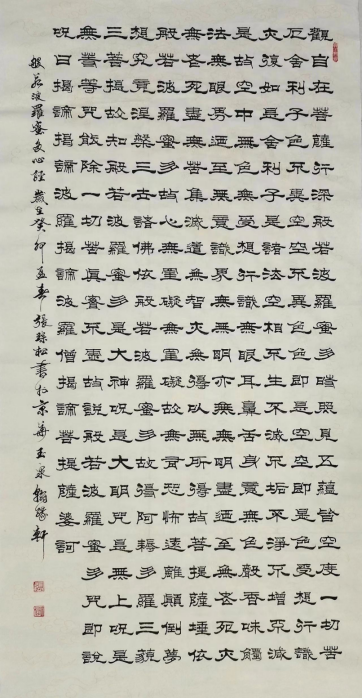 觀自在菩薩行深般若波羅蜜多時照見五蘊皆空度一切苦
厄舍利子色不異空空不異色色即是空空即是色受想行識
亦復如是舍利子是諸法空相不生不滅不垢不淨不增不減
是故空中無色無受想行識無眼耳鼻舌身意無色聲香味觸
法無眼界乃至無意識界無無明亦無無明盡乃至無老死亦
無老死盡無苦集滅道無智亦無得以無所得故菩提薩埵依
般若波羅蜜多故心無罣礙無罣礙故無有恐怖遠離顛倒夢
想究竟涅槃三世諸佛依般若波羅蜜多故得阿耨多羅三藐
三菩提故知般若波羅蜜多是大神呪是大明呪是無上呪是
無等等呪能除一切苦真實不虛故說般若波羅蜜多呪即說
呪曰揭諦揭諦波羅揭諦波羅僧揭諦菩提薩婆訶
般若波羅蜜多心經歲在癸卯孟春張松書於京華玉泉翰軒